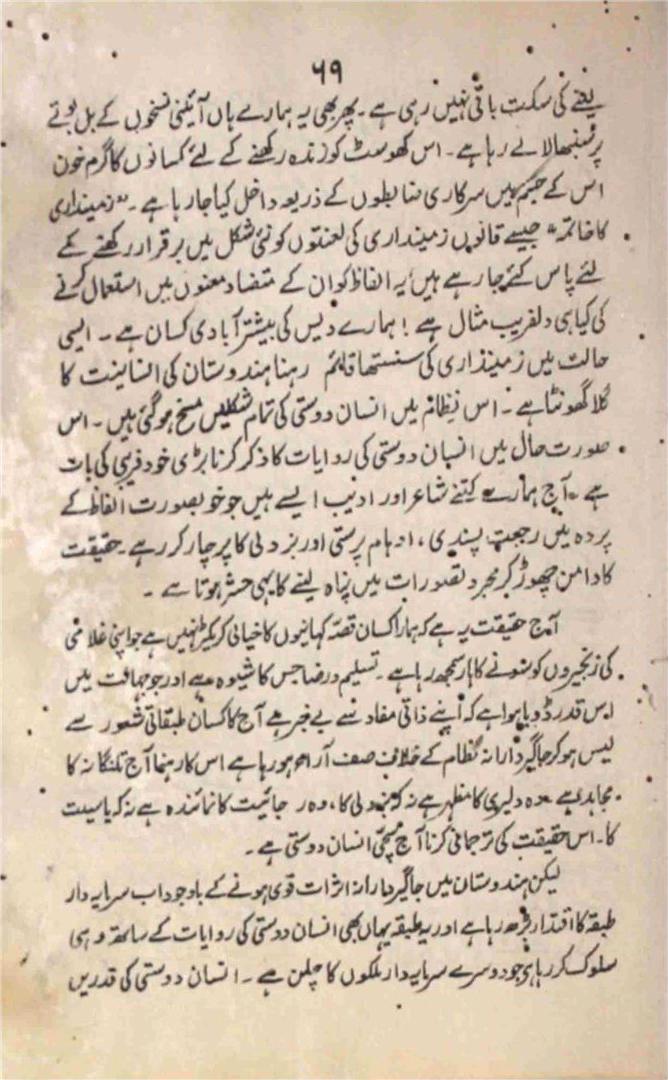 ۶۹
لینے کی سکت باقی نہیں رہی ہے ۔ پھر بھی یہ ہمارے ہاں آئینی نسخوں کے بل بوتے
پر سنبھالا لے رہا ہے ۔ اس کھوسٹ کو زندہ رکھنے کے لئے کسانوں کا گرم خون
اس کے جسم میں سرکاری ضابطوں کے ذریعہ داخل کیا جا رہا ہے ۔ "زمینداری
کا خاتمہ" جیسے قانون زمینداری کی لعنتوں کو نئی شکل میں برقرار رکھنے کے
لئے پاس کئے جا رہے ہیں، یہ الفاظ کو ان کے متضاد معنوں میں استعمال کرنے
کی کیا ہی دلفریب مثال ہے ! ہمارے دیس کی بیشتر آبادی کسان ہے ۔ ایسی
حالت میں زمینداری کی سنستھا قائم رہنا ہندوستان کی انسانیت کا
گلا گھونٹنا ہے ۔ اس نظام میں انسان دوستی کی تمام شکلیں مسخ ہو گئی ہیں ۔ اس
صورت حال میں انسان دوستی کی روایات کا ذکر کرنا بڑی خود فریبی کی بات
ہے ۔ آج ہمارے کتنے شاعر اور ادیب ایسے ہیں جو خوبصورت الفاظ کے
پردہ میں رجعت پسندی ، اوہام پرستی اور بزدلی کا پرچار کر رہے ۔ حقیقت
کا دامن چھوڑ کر مجرد تصورات میں پناہ لینے کا یہی حشر ہوتا ہے ۔
آج حقیقت یہ ہے کہ ہمارا کسان قصہ کہانیوں کا خیالی کریکٹر نہیں ہے جو اپنی غلامی
کی زنجیروں کو سونے کا ہار سمجھ رہا ہے ۔ تسلیم و رضا جس کا شیوہ ہے اور جو جہالت میں
اس قدر ڈوبا ہوا ہے کہ اپنے ذاتی مفاد سے بے خبر ہے آج کا کسان طبقاتی شعور سے
لیس ہو کر جاگیردارانہ نظام کے خلاف صف آرا ہو رہا ہے اس کا رہنما آج تلنگانہ کا
مجاہد ہے ۔ وہ دلیری کا مظہر ہے نہ کہ بزدلی کا ، وہ رجائیت کا نمائندہ ہے نہ کہ یاسیت
کا ۔ اس حقیقت کی ترجمانی کرنا آج سچی انسان دوستی ہے ۔
لیکن ہندوستان میں جاگیردارانہ اثرات قوی ہونے کے باوجود اب سرمایہ دار
طبقہ کا اقتدار بڑھ رہا ہے اور یہ طبقہ یہاں بھی انسان دوستی کی روایات کے ساتھ وہی
سلوک کر رہا ہے جو دوسرے سرمایہ دار ملکوں کا چلن ہے ۔ انسان دوستی کی قدریں